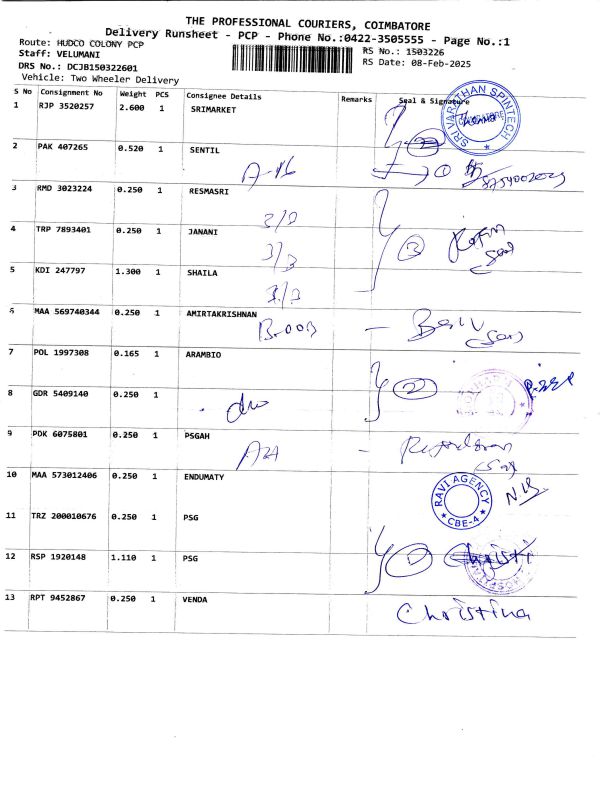 THE PROFESSIONAL COURIERS, COIMBATORE
Delivery Runsheet - PCP - Phone No.:0422-3505555 - Page No.:1
Route: HUDCO COLONY PCP
RS No.: 1503226
Staff: VELUMANI
RS Date: 08-Feb-2025
DRS No.: DCJB150322601
Vehicle: Two Wheeler Delivery
S No Consignment No Weight PCS Consignee Details Remarks Seal & Signature
1 RJP 3520257 2.600 1 SRIMARKET
SRI VARATHAN SPINTECH
2 PAK 407265 0.520 1 SENTIL
A-16
3 RMD 3023224 0.250 1 RESMASRI
3/D
4 TRP 7893401 0.250 1 JANANI
3/D
5 KDI 247797 1.300 1 SHAILA
3/D
6 MAA 569740344 0.250 1 AMIRTAKRISHNAN
7 POL 1997308 0.165 1 ARAMBIO
8 GDR 5409140 0.250 1
9 POK 6075801 0.250 1 PSGAH
10 MAA 573012406 0.250 1 ENDUMATY
RAVI AGENCY
CBE-4
11 TRZ 200010676 0.250 1 PSG
12 RSP 1920148 1.110 1 PSG
Christi
13 RPT 9452867 0.250 1 VENDA
Christina